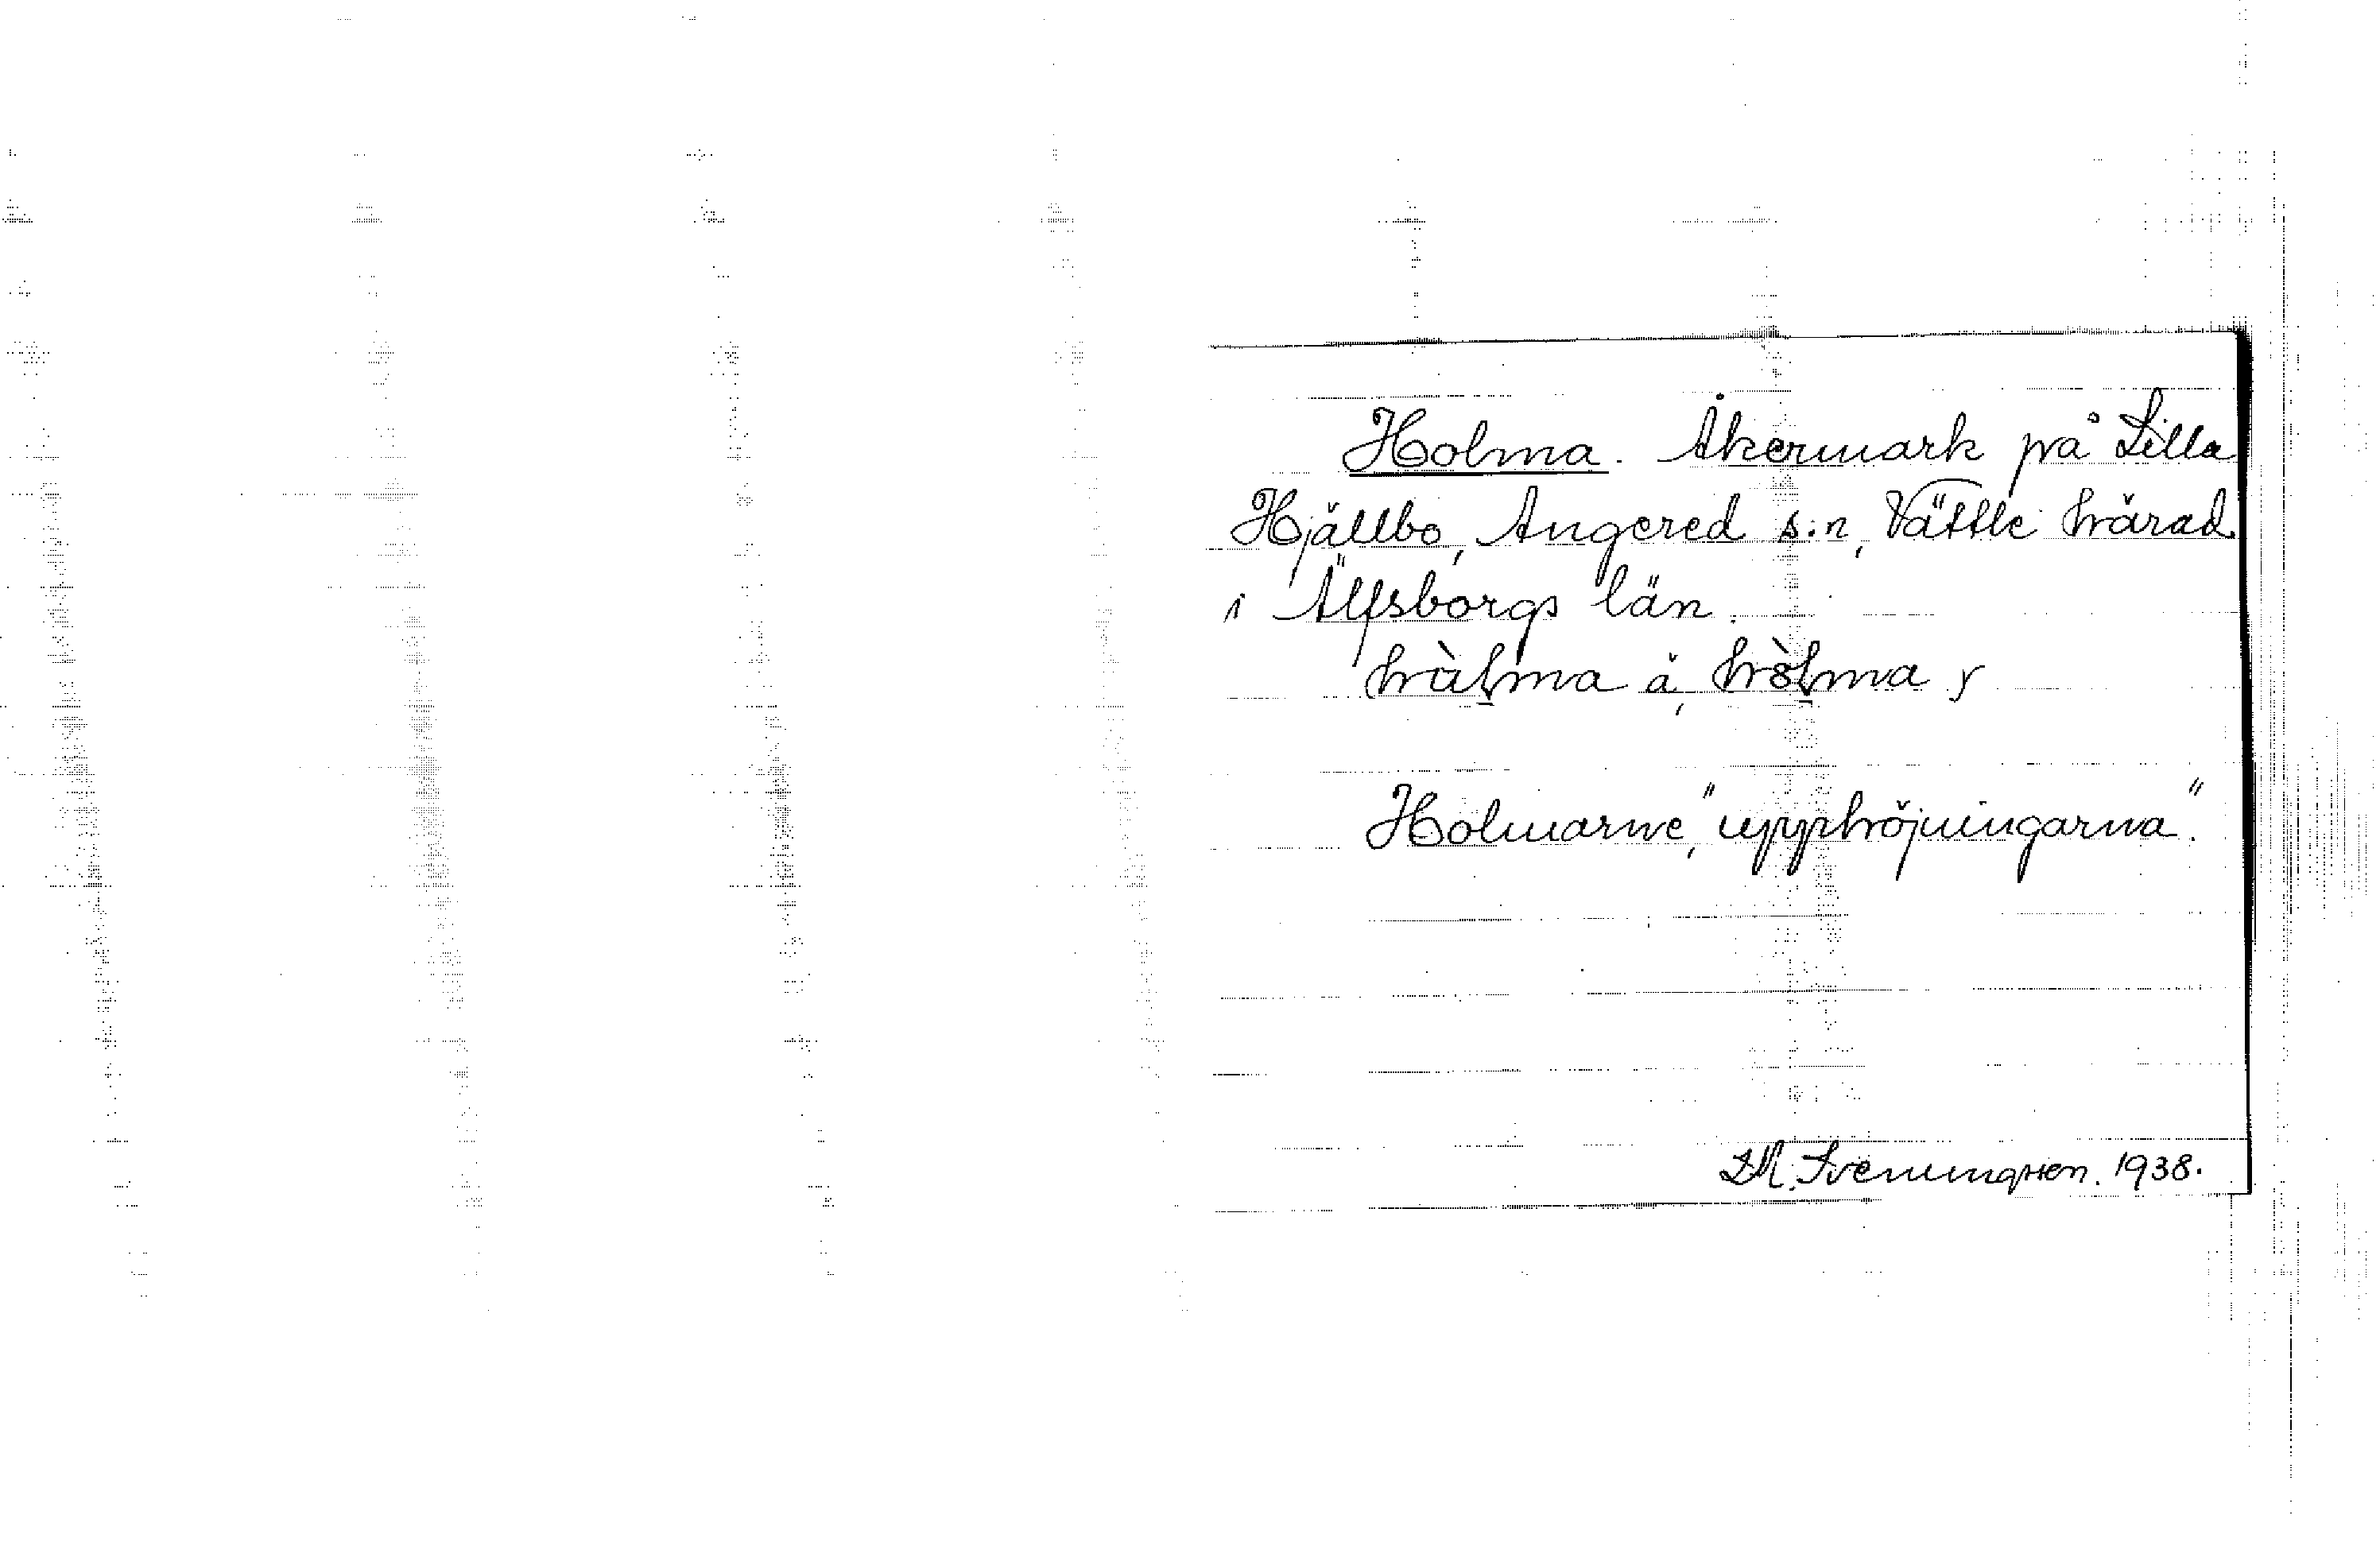 Holma. Åkermark på Lilla
Hjällbo, Angered s:n, Vättle härad
i Älfsborgs län.
hàlma å, hòlma y
Holmarne, "upphöjningarna".
D.M. Svenungsson. 1938.